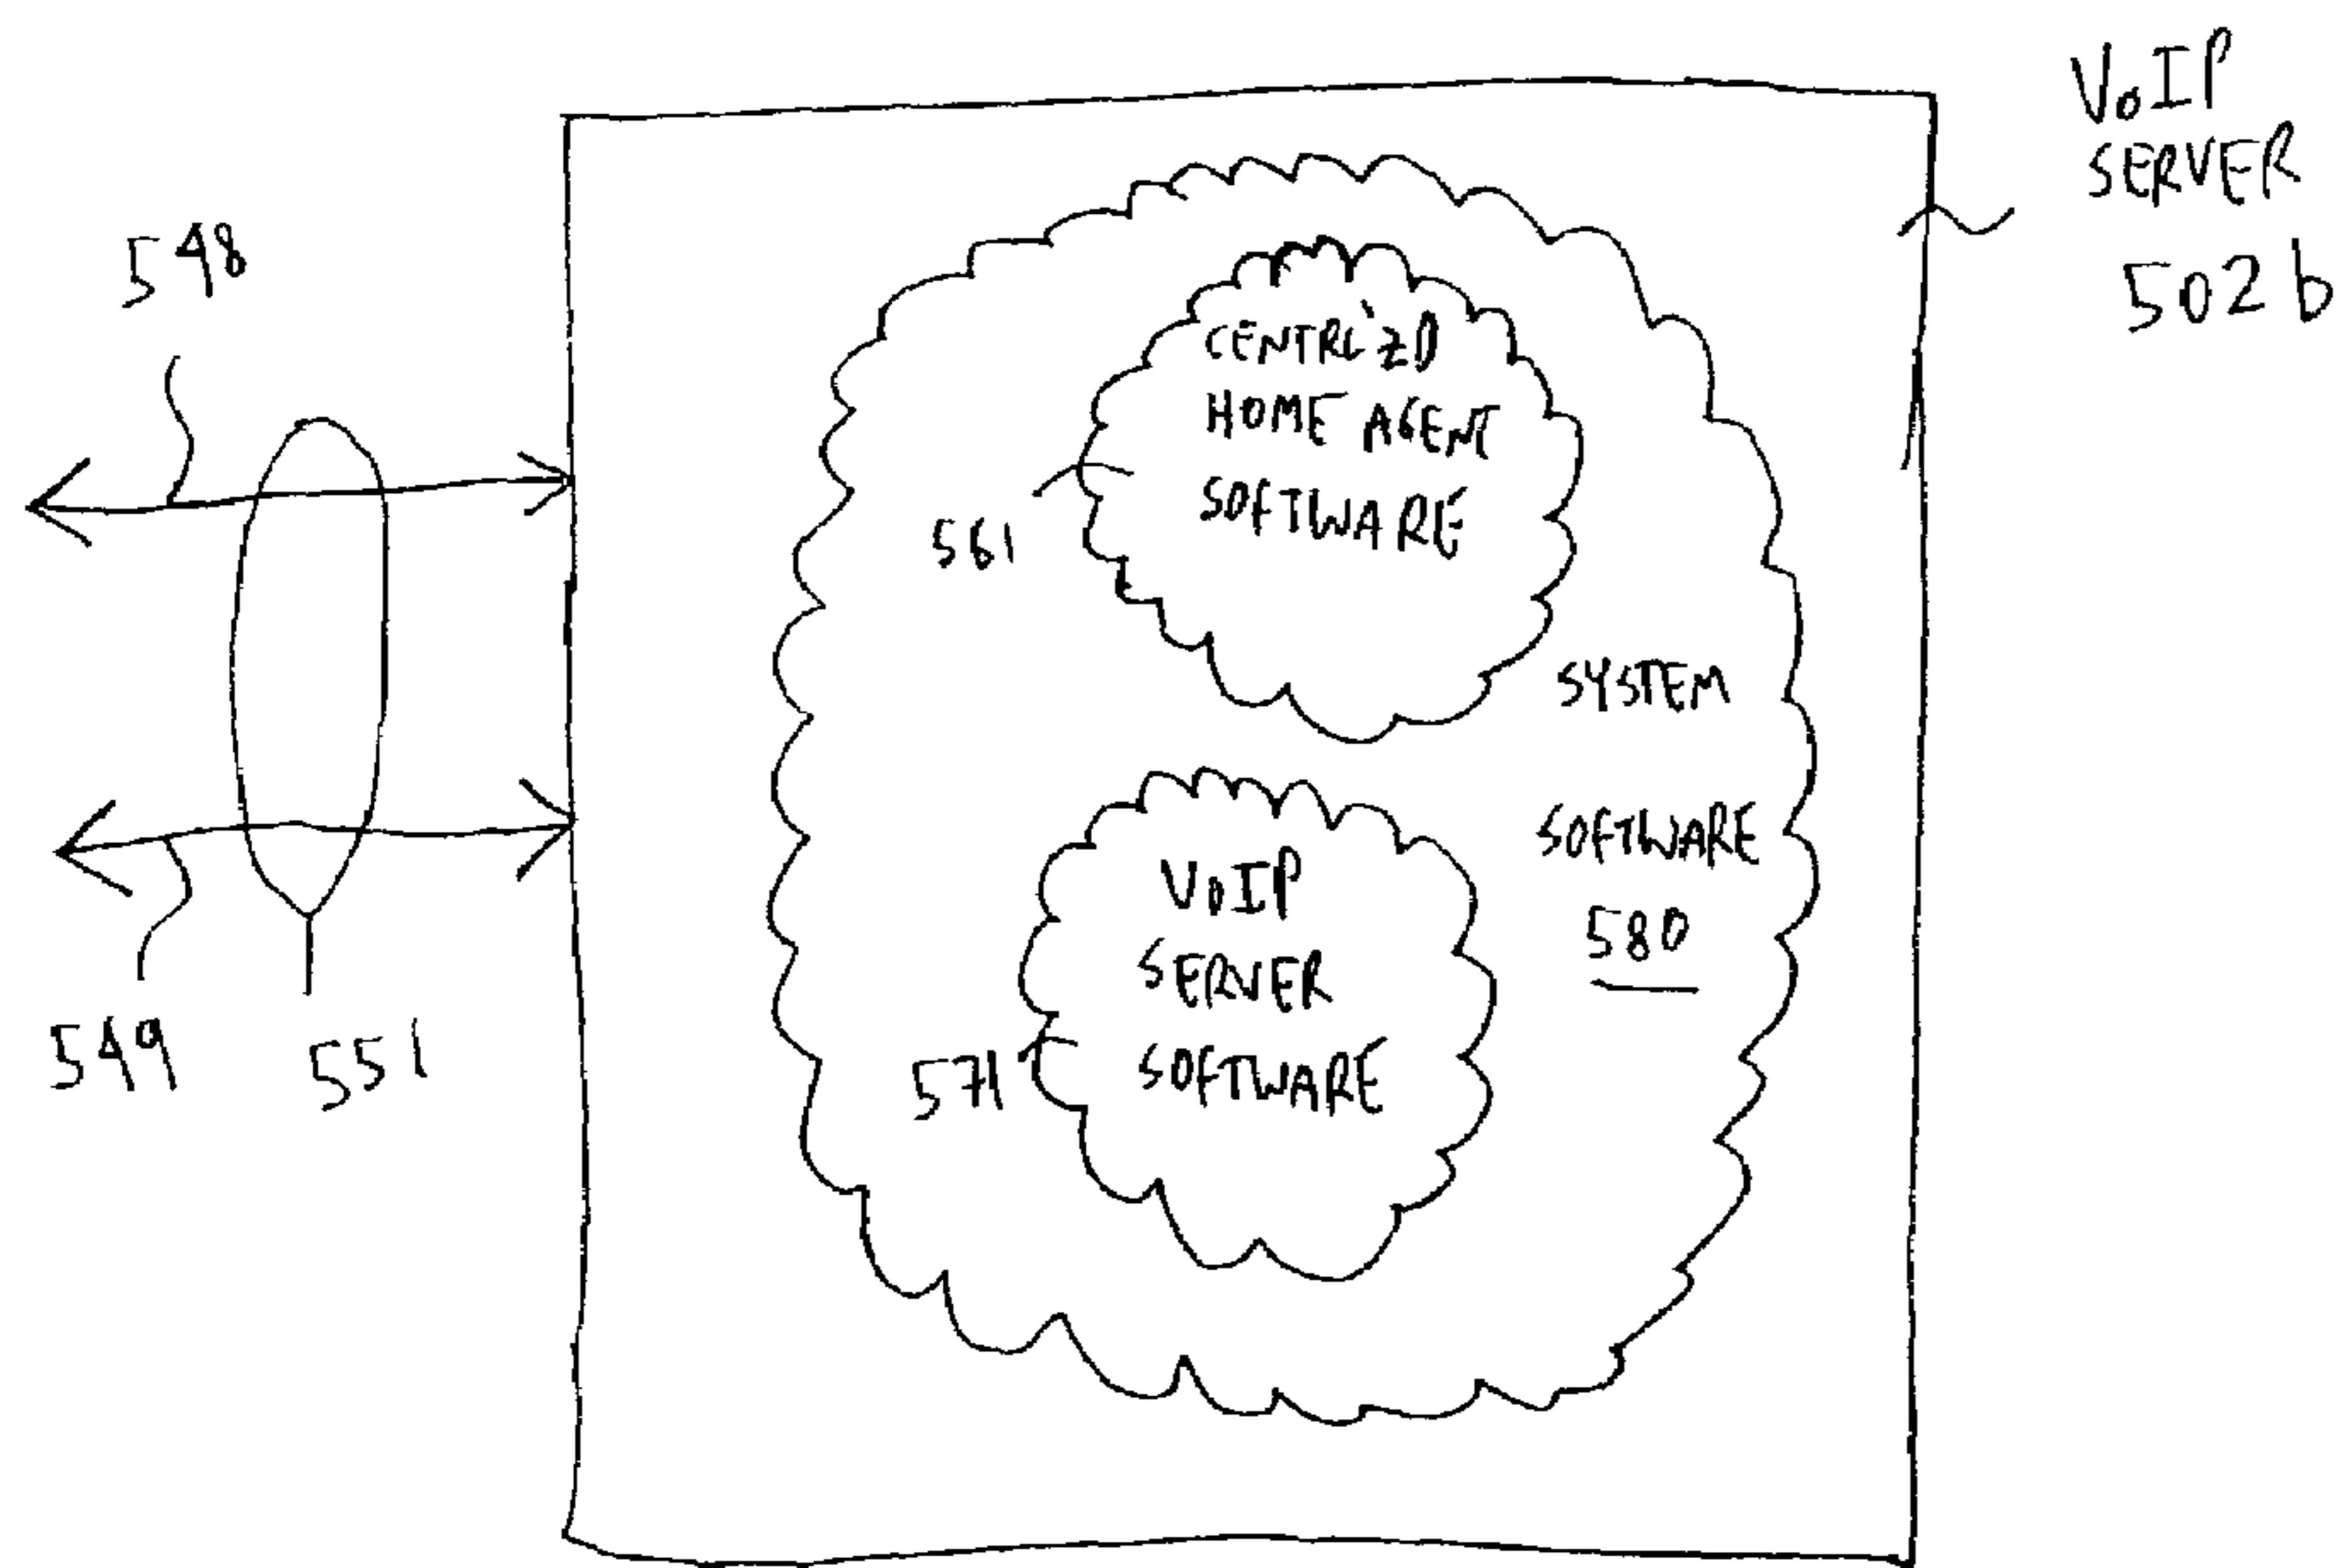 VoIP
SERVER
502b
548
CENTRL'ZD
HOME AGENT
SOFTWARE
561
SYSTEM
SOFTWARE
580
VoIP
SERVER
SOFTWARE
571
549
551